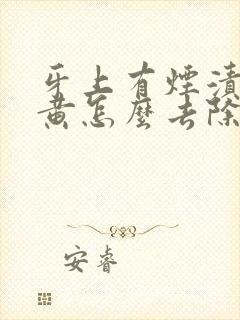 牙上有煙漬
黄怎麽去除
安睿